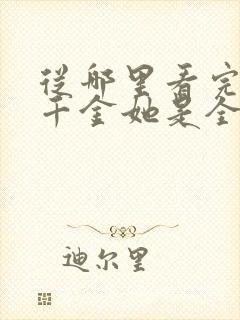 从哪里看完
千金她是全
迪尔里